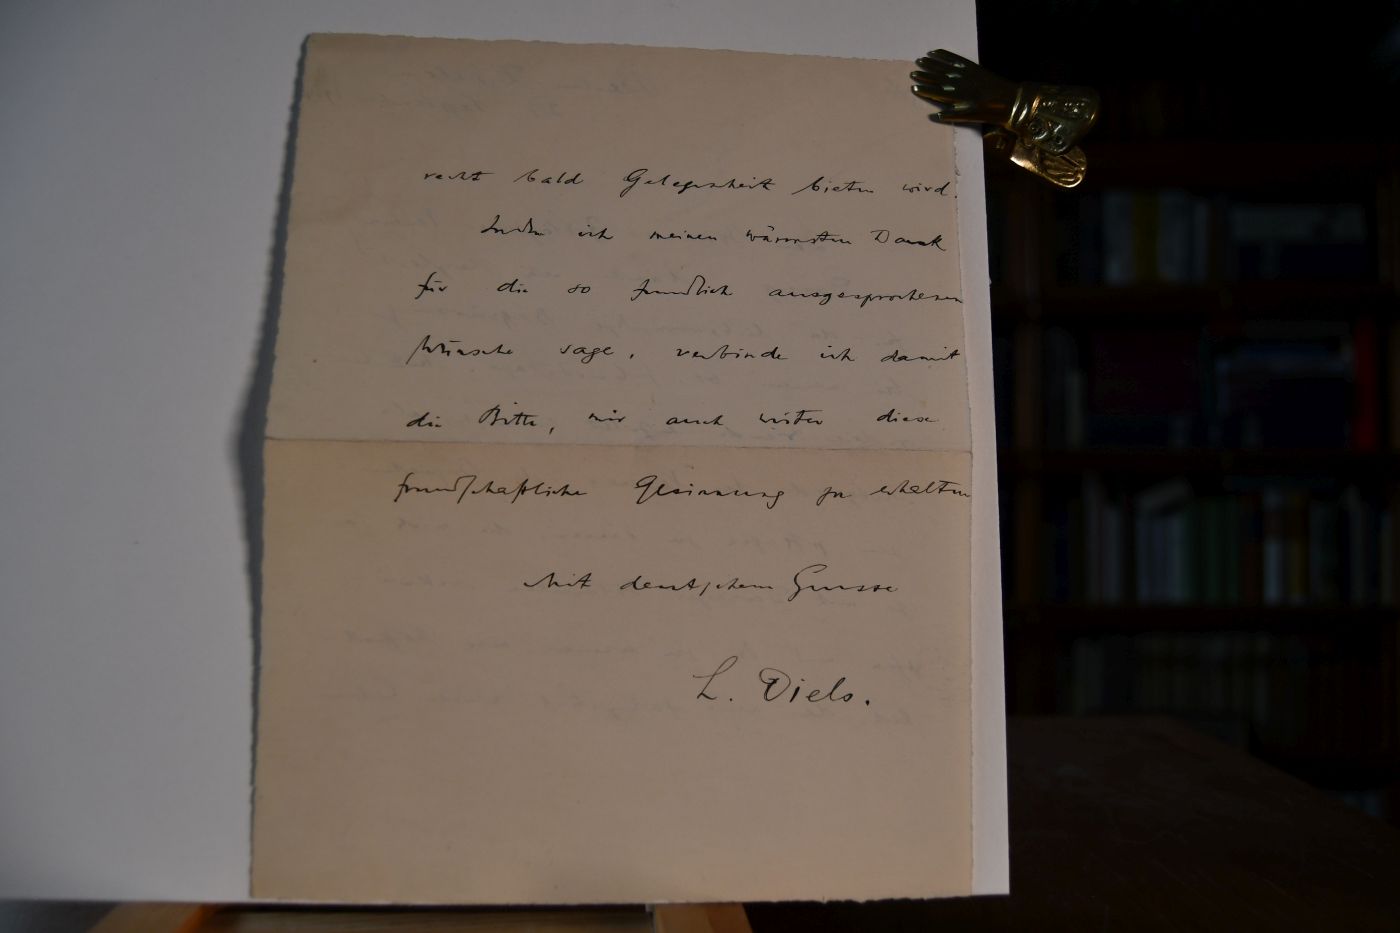 recht bald Gelegenheit bieten wird.
Indem ich meinen wärmsten Dank
für die so freundlich ausgesprochenen
Wünsche sage, verbinde ich damit
die Bitte, mir auch weiter diese
freundschaftliche Gesinnung zu erhalten
Mit deutschem Grusse
L. Diels.